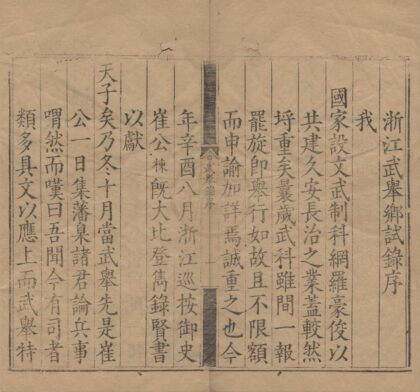 浙江武舉鄉試錄序
我
國家設文武制科網羅豪俊以
共建久安長治之業蓋較然
埒重矣曩歲武科雖間一報
罷旋即舉行如故且不限額
而申諭加詳焉誠重之也今
年辛酉八月浙江巡按御史
崔公棟既大比登雋錄賢書
以獻
天子矣乃冬十月當武舉先是崔
公一日集藩臬諸君論兵事
喟然而嘆曰吾聞今有司者
類多具文以應上而武舉特